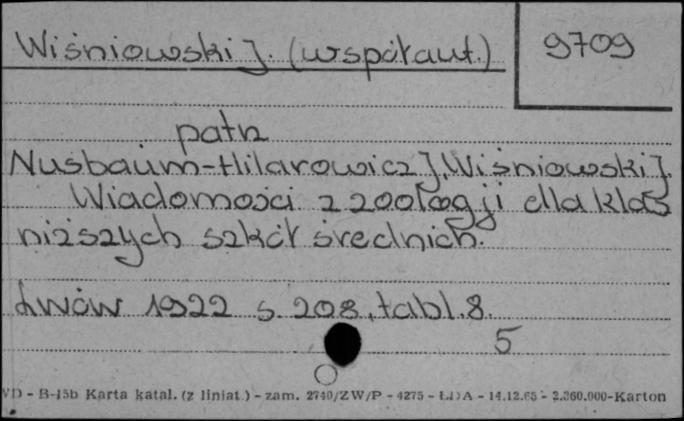 Wiśniowski J. (współaut.)
9709
patrz
Nusbaum-Hilarowicz J., Wiśniowski J.
Wiadomości z zoologji dla klas
niższych szkół średnich.
Lwów 1922 s. 208, tabl. 8.
5
WD - B-15b Karta katal. (z liniat.) - zam. 2740/ZW/P - 4275 - ŁDA - 14.12.65 - 2.360.000-Karton